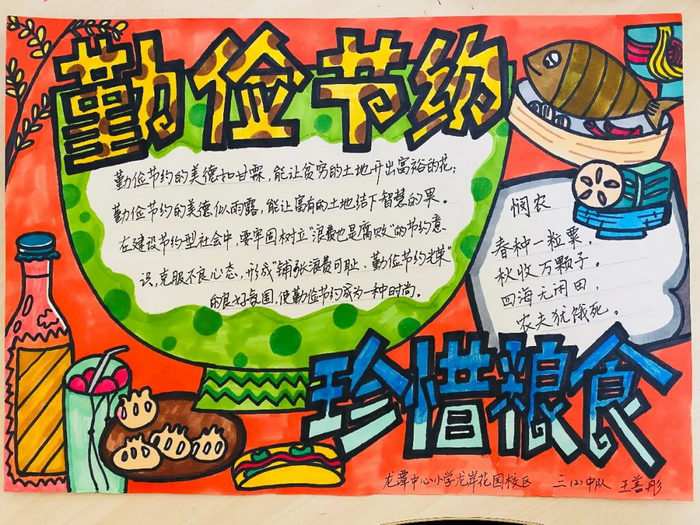 勤俭节约
勤俭节约的美德如甘霖，能让贫穷的土地开出富裕的花；
勤俭节约的美德似雨露，能让富有的土地结下智慧的果。
在建设节约型社会中，要牢固树立“浪费也是腐败”的节约意
识，克服不良心态，形成“铺张浪费可耻、勤俭节约光荣”
的良好氛围，使勤俭节约成为一种时尚。
悯农
春种一粒粟，
秋收万颗子。
四海无闲田，
农夫犹饿死。
珍惜粮食
龙潭中心小学龙岸花园校区 三(2)中队 王善彤